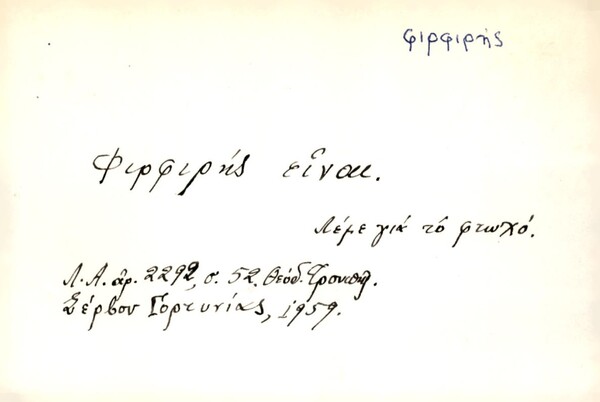 φιρφιρής
Φιρφιρής εἶναι.
Λέμε γιά τό φτωχό.
Λ.Α. ἀρ. 2292, σ. 52. Θεόδ.
Σέρβου Γορτυνίας, 1959.